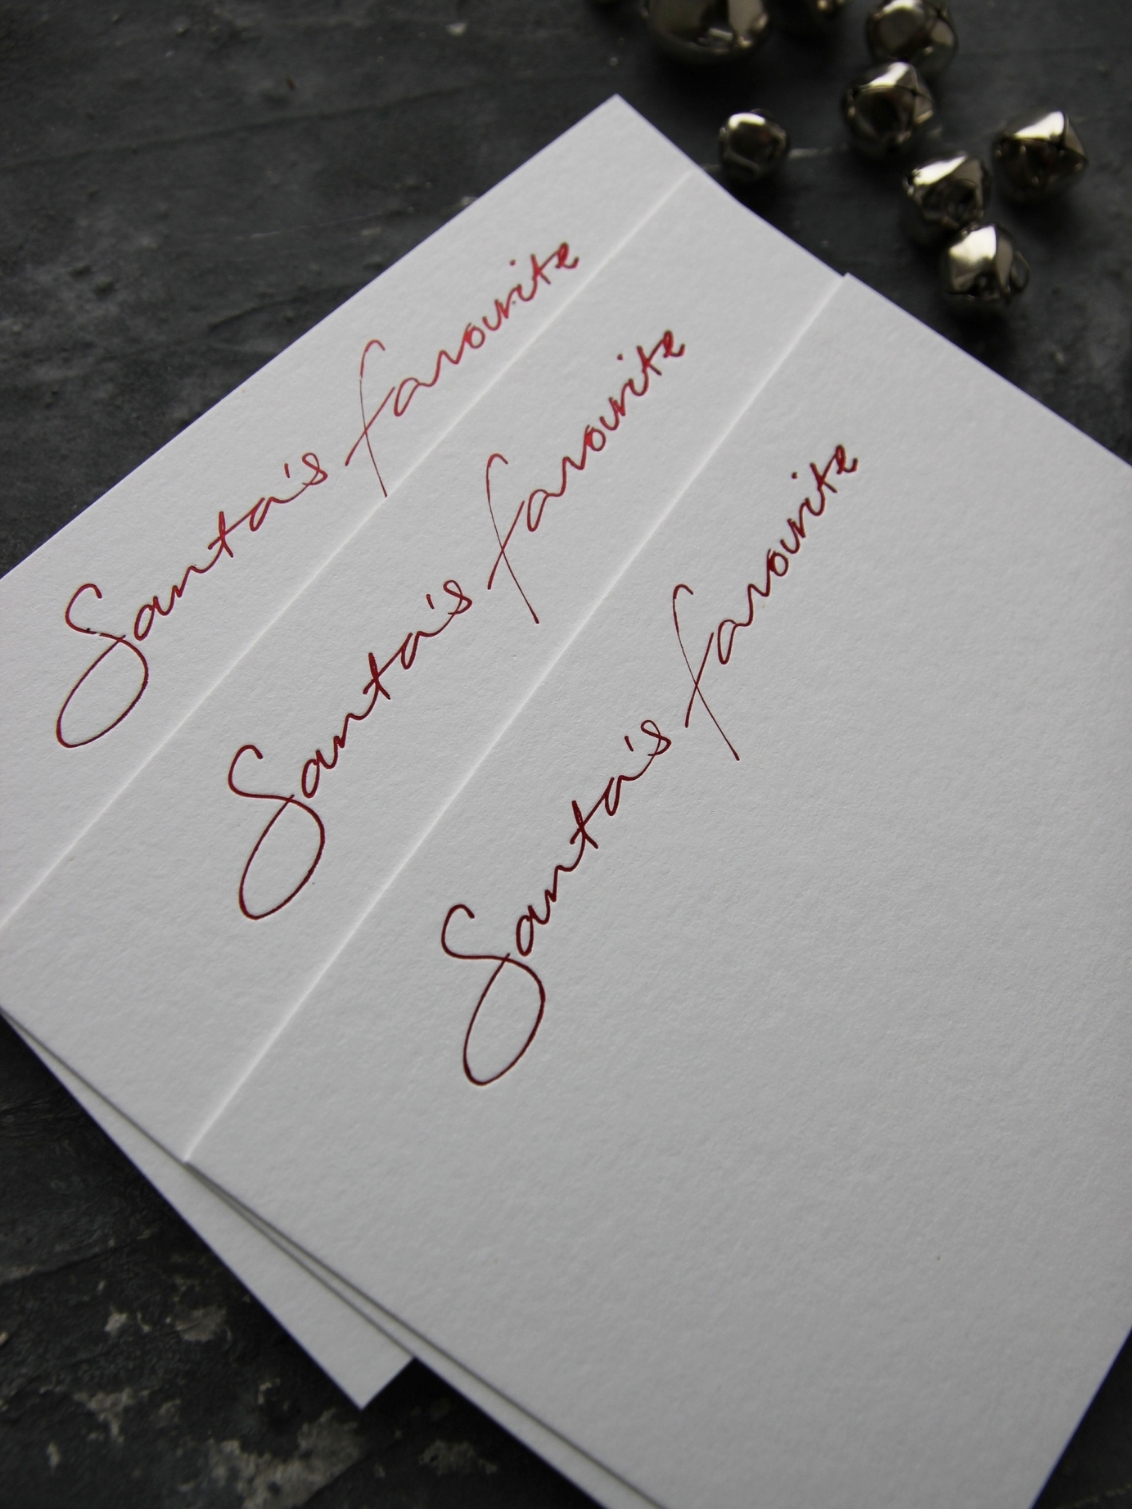 Santa's favourite
Santa's favourite
Santa's favourite